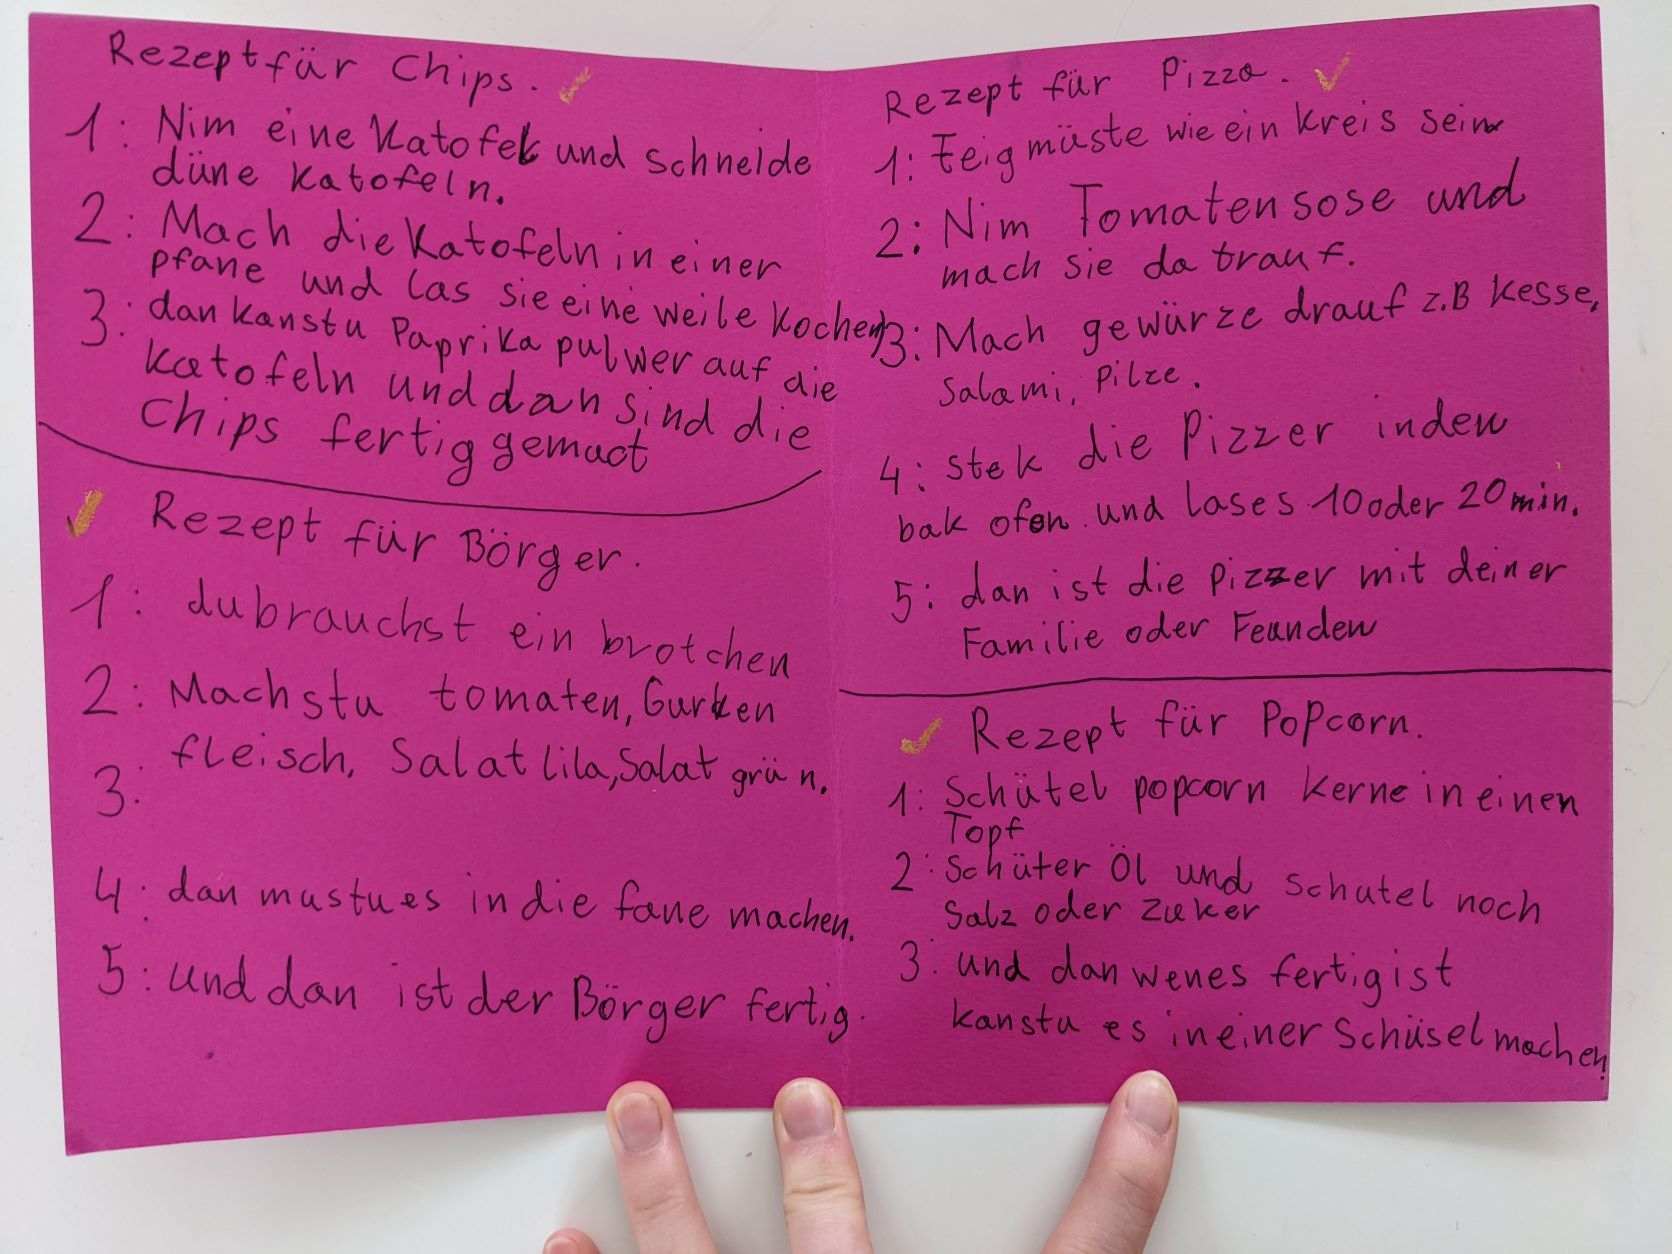 Rezept für Chips.
1: Nim eine Katofel und schneide
düne Katofeln.
2: Mach die Katofeln in einer
pfane und las sie eine weile kochen
3: dan kanstu Paprika pulwer auf die
Katofeln und dan sind die
Chips fertig gemact
Rezept für Börger.
1: du brauchst ein brotchen
2: Machstu tomaten, Gurken
fleisch, Salat lila, Salat grün.
3:
4: dan mustu es in die fane machen.
5: und dan ist der Börger fertig.
Rezept für Pizza.
1: Teig müste wie ein kreis sein
2: Nim Tomatensose und
mach sie da trauf.
3: Mach gewürze drauf z.B kesse,
Salami, Pilze.
4: stek die Pizzer in den
bak ofen und lases 10 oder 20 min.
5: dan ist die pizzer mit deiner
Familie oder Feunden
Rezept für PoPcorn.
1: Schütel popcorn kerne in einen
Topf
2: Schüter Öl und schutel noch
Salz oder Zuker
3: und dan wenes fertig ist
kanstu es in einer Schüsel machen!